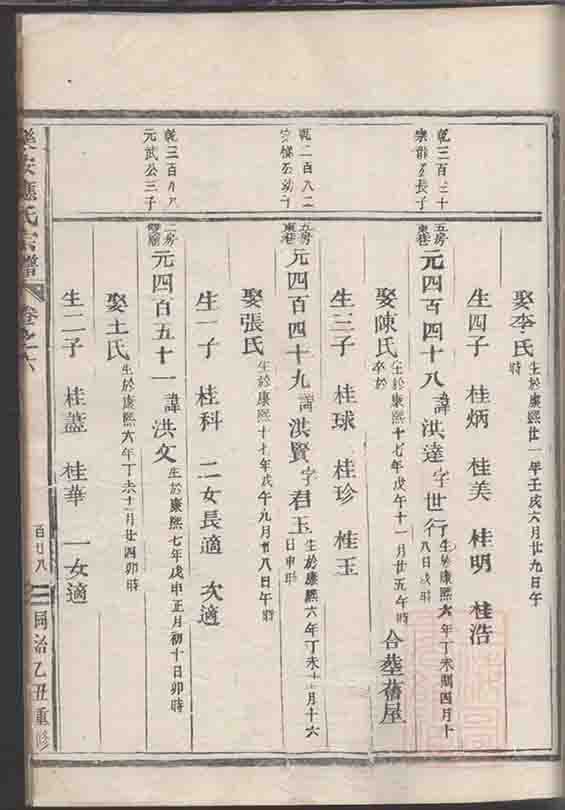 娶李氏 生於康熙廿一年壬戌六月廿九日午時
生四子 桂炳 桂美 桂明 桂浩
乾三百三十
長子
五房東巷
元四百四十八 諱洪達 字世行 生於康熙六年丁未閏四月十八日戌時
娶陳氏 生於康熙十七年戊午十一月廿五午時 卒於 合塟舊屋
生三子 桂球 桂珍 桂玉
乾二百八二
五房東巷
元四百四十九 諱洪賢 字君玉 生於康熙六年丁未十一月十六日申時
娶張氏 生於康熙十七年戊午九月廿八日午時
生一子 桂科 二女長適 次適
乾三百九八
元武公三子
二房
元四百五十一 諱洪文 生於康熙七年戊申正月初十日卯時
娶王氏 生於康熙六年丁未十二月廿四卯時
生二子 桂蓋 桂華 一女適
樂安應氏宗譜 卷之六 百廿八 同治乙丑重修